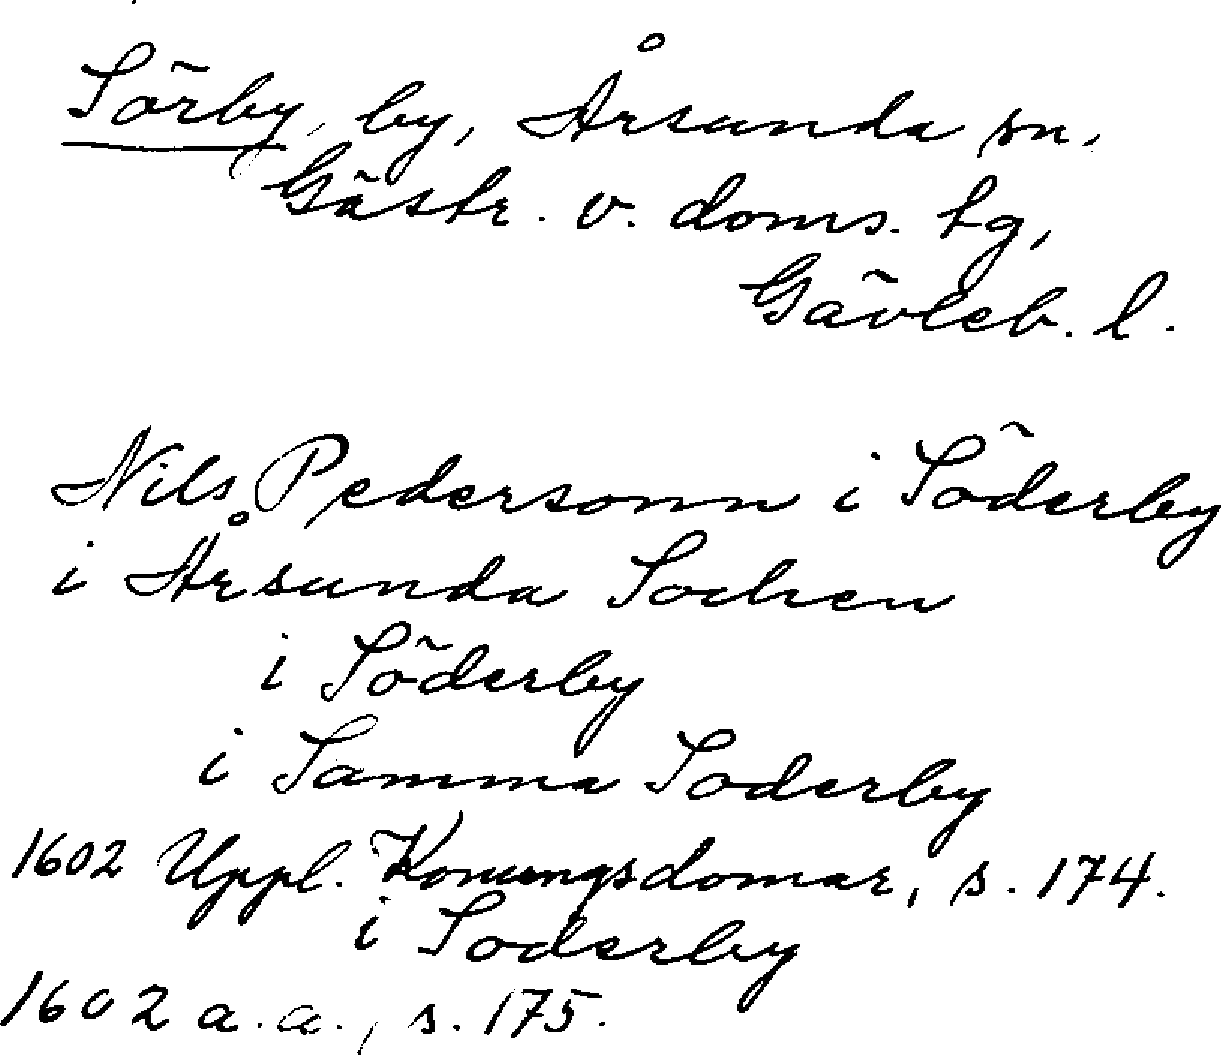 Sörby, by, Årsunda sn,
Gästr. v. doms. tg,
Gävleb. l.
Nils Pedersonn i Söderby
i Årsunda Sochen
i Söderby
i Samma Soderby
1602 Uppl. Konungsdomar, s. 174.
i Soderby
1602 a. a., s. 175.